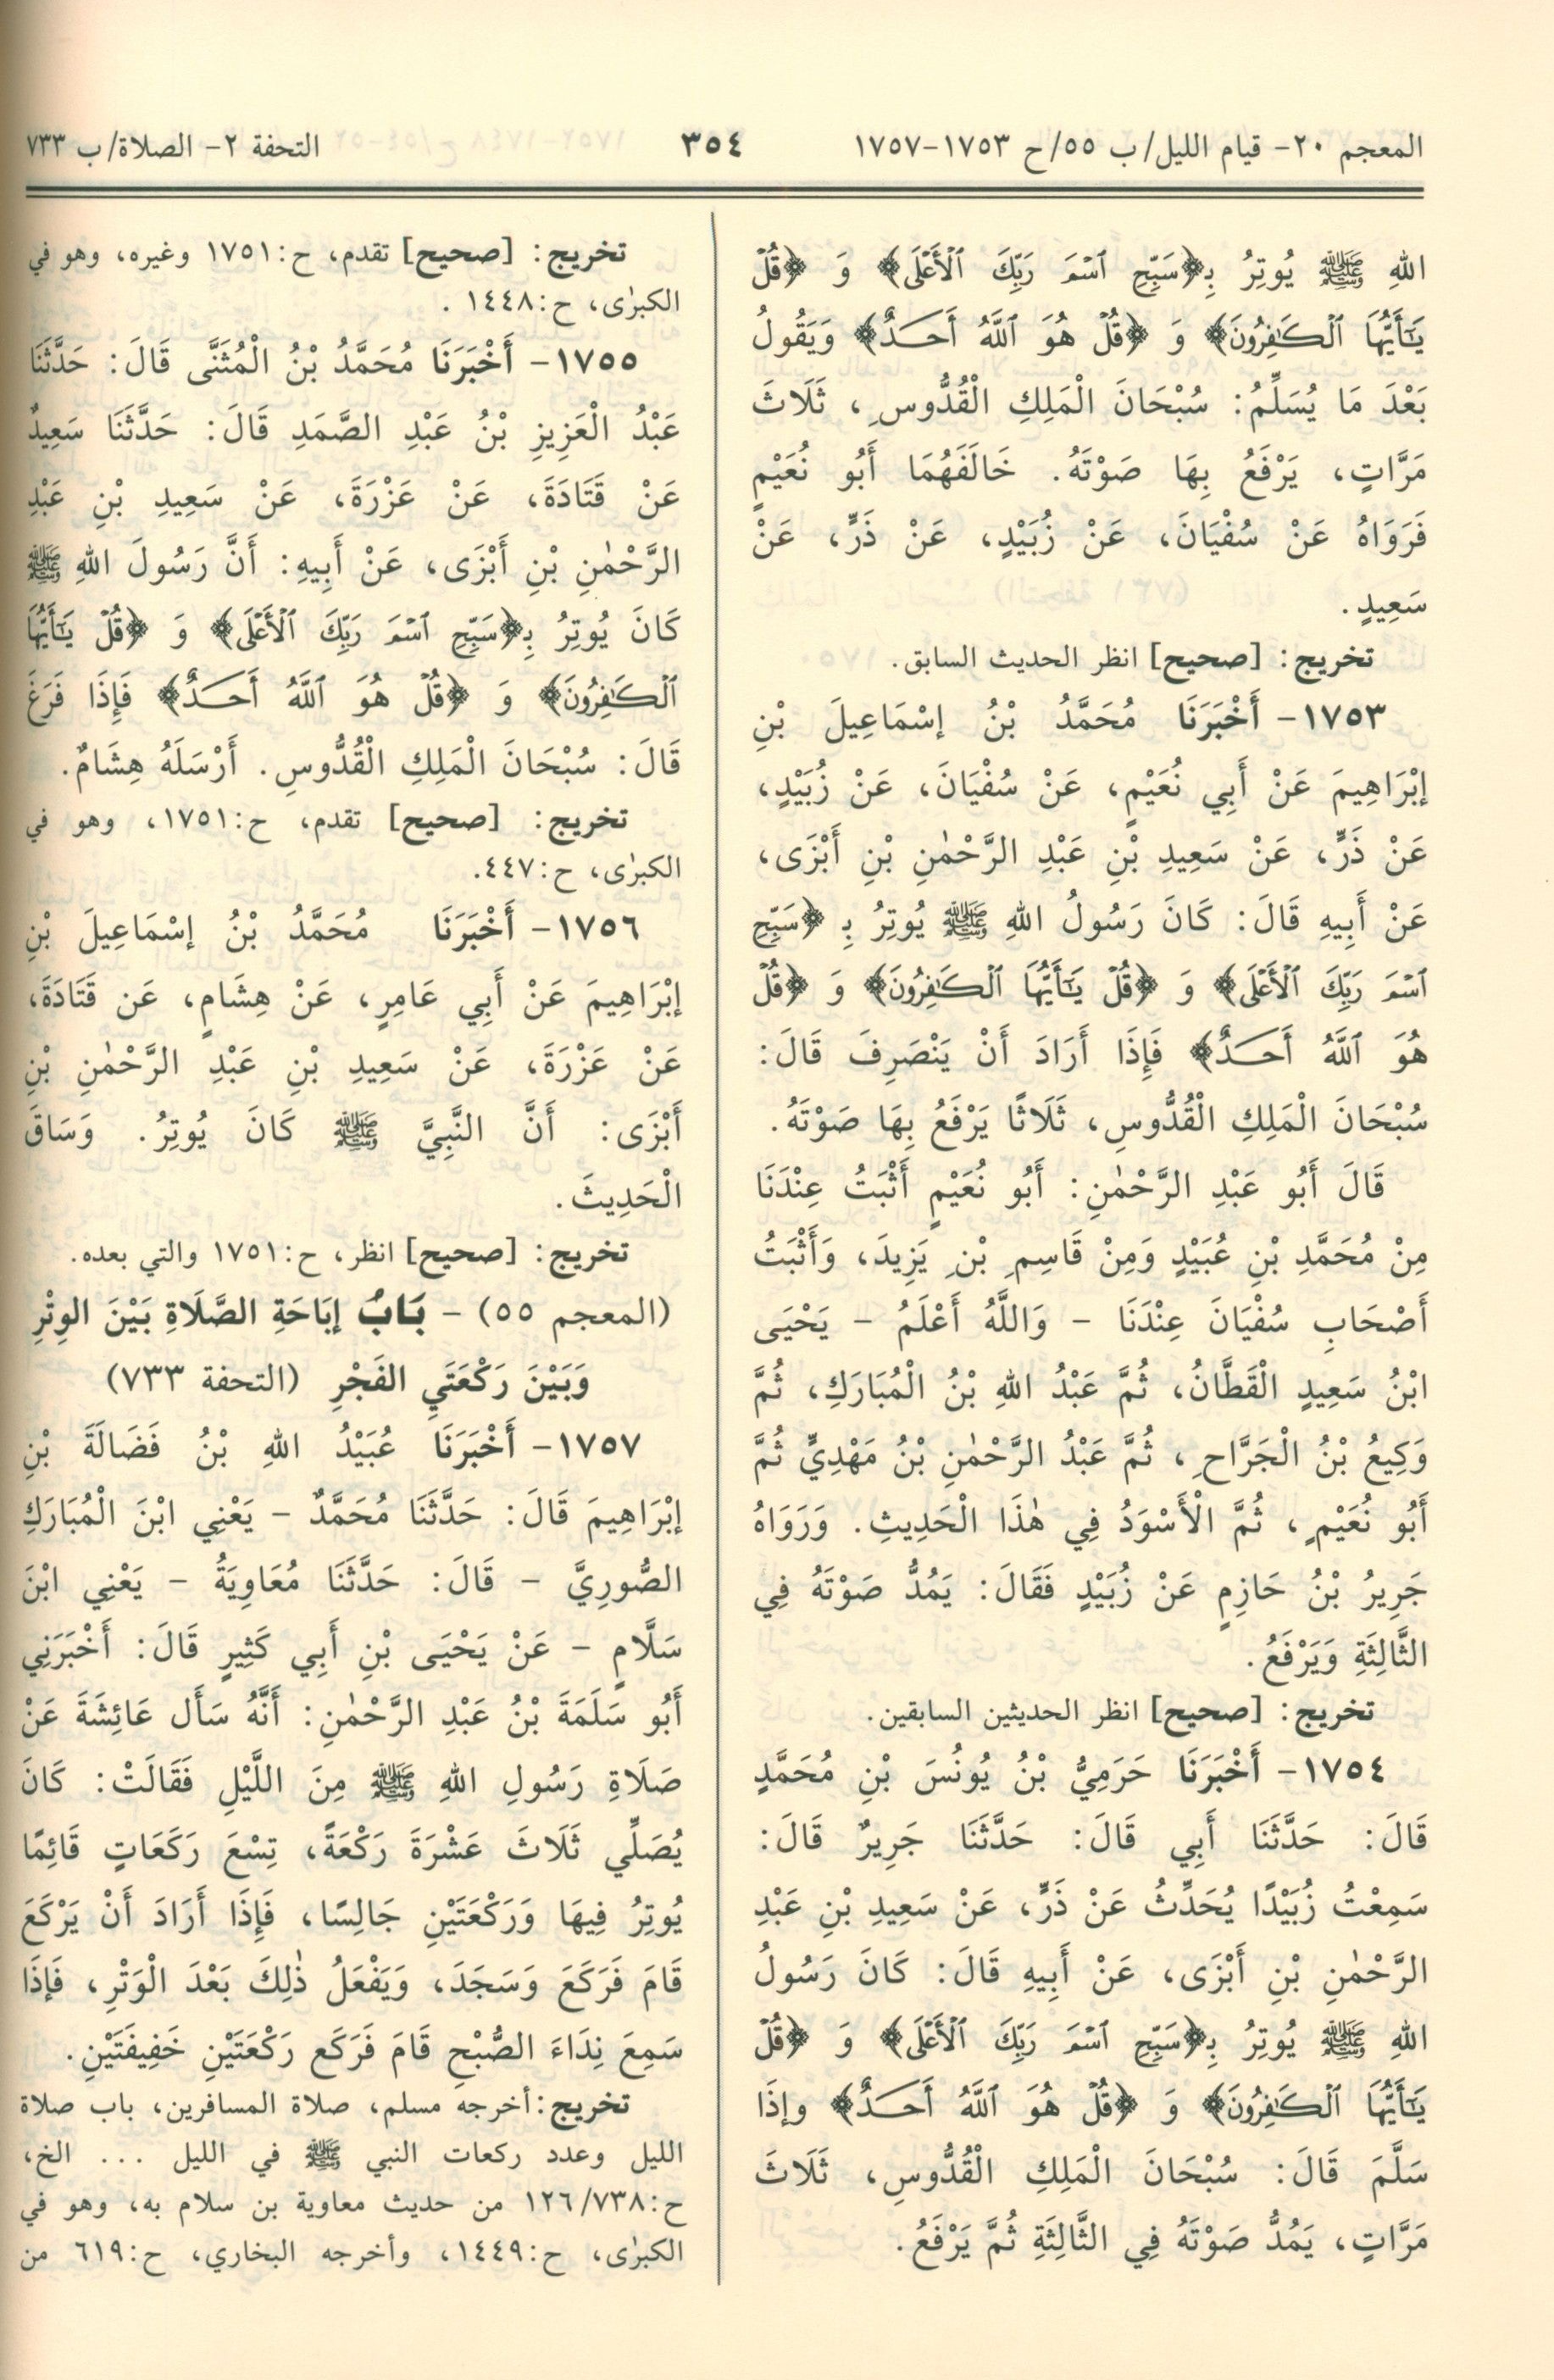 المعجم ٢٠- قيام الليل/ ب ٥٥/ ح ١٧٥٣-١٧٥٧
٣٥٤
التحفة ٢- الصلاة/ ب ٧٣٣
اللهِ ﷺ يُوتِرُ بِـ﴿سَبِّحِ ٱسْمَ رَبِّكَ ٱلْأَعْلَى﴾ وَ ﴿قُلْ
يَـٰٓأَيُّهَا ٱلْكَـٰفِرُونَ﴾ وَ ﴿قُلْ هُوَ ٱللَّهُ أَحَـدٌ﴾ وَيَقُولُ
بَعْدَ مَا يُسَلِّمُ: سُبْحَانَ الْمَلِكِ الْقُدُّوسِ، ثَلَاثَ
مَرَّاتٍ، يَرْفَعُ بِهَا صَوْتَهُ. خَالَفَهُمَا أَبُو نُعَيْمٍ
فَرَوَاهُ عَنْ سُفْيَانَ، عَنْ زُبَيْدٍ، عَنْ ذَرٍّ، عَنْ
سَعِيدٍ.
تخريج: [صحيح] انظر الحديث السابق.
١٧٥٣- أَخْبَرَنَا مُحَمَّدُ بْنُ إسْمَاعِيلَ بْنِ
إبْرَاهِيمَ عَنْ أَبِي نُعَيْمٍ، عَنْ سُفْيَانَ، عَنْ زُبَيْدٍ،
عَنْ ذَرٍّ، عَنْ سَعِيدِ بْنِ عَبْدِ الرَّحْمٰنِ بْنِ أَبْزَى،
عَنْ أَبِيهِ قَالَ: كَانَ رَسُولُ اللهِ ﷺ يُوتِرُ بِـ ﴿سَبِّحِ
ٱسْمَ رَبِّكَ ٱلْأَعْلَى﴾ وَ ﴿قُلْ يَـٰٓأَيُّهَا ٱلْكَـٰفِرُونَ﴾ وَ ﴿قُلْ
هُوَ ٱللَّهُ أَحَـدٌ﴾ فَإِذَا أَرَادَ أَنْ يَنْصَرِفَ قَالَ:
سُبْحَانَ الْمَلِكِ الْقُدُّوسِ، ثَلَاثًا يَرْفَعُ بِهَا صَوْتَهُ.
قَالَ أَبُو عَبْدِ الرَّحْمٰنِ: أَبُو نُعَيْمٍ أَثْبَتُ عِنْدَنَا
مِنْ مُحَمَّدِ بْنِ عُبَيْدٍ وَمِنْ قَاسِمِ بْنِ يَزِيدَ، وَأَثْبَتُ
أَصْحَابِ سُفْيَانَ عِنْدَنَا - وَاللَّهُ أَعْلَمُ - يَحْيَى
ابْنُ سَعِيدٍ الْقَطَّانُ، ثُمَّ عَبْدُ اللهِ بْنُ الْمُبَارَكِ، ثُمَّ
وَكِيعُ بْنُ الْجَرَّاحِ، ثُمَّ عَبْدُ الرَّحْمٰنِ بْنُ مَهْدِيٍّ ثُمَّ
أَبُو نُعَيْمٍ، ثُمَّ الْأَسْوَدُ فِي هٰذَا الْحَدِيثِ. وَرَوَاهُ
جَرِيرُ بْنُ حَازِمٍ عَنْ زُبَيْدٍ فَقَالَ: يَمُدُّ صَوْتَهُ فِي
الثَّالِثَةِ وَيَرْفَعُ.
تخريج: [صحيح] انظر الحديثين السابقين.
١٧٥٤- أَخْبَرَنَا حَرَمِيُّ بْنُ يُونُسَ بْنِ مُحَمَّدٍ
قَالَ: حَدَّثَنَا أَبِي قَالَ: حَدَّثَنَا جَرِيرٌ قَالَ:
سَمِعْتُ زُبَيْدًا يُحَدِّثُ عَنْ ذَرٍّ، عَنْ سَعِيدِ بْنِ عَبْدِ
الرَّحْمٰنِ بْنِ أَبْزَى، عَنْ أَبِيهِ قَالَ: كَانَ رَسُولُ
اللهِ ﷺ يُوتِرُ بِـ﴿سَبِّحِ ٱسْمَ رَبِّكَ ٱلْأَعْلَى﴾ وَ ﴿قُلْ
يَـٰٓأَيُّهَا ٱلْكَـٰفِرُونَ﴾ وَ ﴿قُلْ هُوَ ٱللَّهُ أَحَـدٌ﴾ وإذَا
سَلَّمَ قَالَ: سُبْحَانَ الْمَلِكِ الْقُدُّوسِ، ثَلَاثَ
مَرَّاتٍ، يَمُدُّ صَوْتَهُ فِي الثَّالِثَةِ ثُمَّ يَرْفَعُ.
تخريج: [صحيح] تقدم، ح:١٧٥١ وغيره، وهو في
الكبرٰى، ح:١٤٤٨ .
١٧٥٥- أَخْبَرَنَا مُحَمَّدُ بْنُ الْمُثَنَّى قَالَ: حَدَّثَنَا
عَبْدُ الْعَزِيزِ بْنُ عَبْدِ الصَّمَدِ قَالَ: حَدَّثَنَا سَعِيدٌ
عَنْ قَتَادَةَ، عَنْ عَزْرَةَ، عَنْ سَعِيدِ بْنِ عَبْدِ
الرَّحْمٰنِ بْنِ أَبْزَى، عَنْ أَبِيهِ: أَنَّ رَسُولَ اللهِ ﷺ
كَانَ يُوتِرُ بِـ﴿سَبِّحِ ٱسْمَ رَبِّكَ ٱلْأَعْلَى﴾ وَ ﴿قُلْ يَـٰٓأَيُّهَا
ٱلْكَـٰفِرُونَ﴾ وَ ﴿قُلْ هُوَ ٱللَّهُ أَحَـدٌ﴾ فَإِذَا فَرَغَ
قَالَ: سُبْحَانَ الْمَلِكِ الْقُدُّوسِ. أَرْسَلَهُ هِشَامٌ.
تخريج: [صحيح] تقدم، ح:١٧٥١، وهو في
الكبرٰى، ح:٤٤٧.
١٧٥٦- أَخْبَرَنَا مُحَمَّدُ بْنُ إسْمَاعِيلَ بْنِ
إبْرَاهِيمَ عَنْ أَبِي عَامِرٍ، عَنْ هِشَامٍ، عَن قَتَادَةَ،
عَنْ عَزْرَةَ، عَنْ سَعِيدِ بْنِ عَبْدِ الرَّحْمٰنِ بْنِ
أَبْزَى: أَنَّ النَّبِيَّ ﷺ كَانَ يُوتِرُ. وَسَاقَ
الْحَدِيثَ.
تخريج: [صحيح] انظر، ح:١٧٥١ والتي بعده.
(المعجم ٥٥) - بَابُ إبَاحَةِ الصَّلَاةِ بَيْنَ الوِتْرِ
وَبَيْنَ رَكْعَتَيِ الفَجْرِ (التحفة ٧٣٣)
١٧٥٧- أَخْبَرَنَا عُبَيْدُ اللهِ بْنُ فَضَالَةَ بْنِ
إبْرَاهِيمَ قَالَ: حَدَّثَنَا مُحَمَّدٌ - يَعْنِي ابْنَ الْمُبَارَكِ
الصُّورِيَّ - قَالَ: حَدَّثَنَا مُعَاوِيَةُ - يَعْنِي ابْنَ
سَلَّامٍ - عَنْ يَحْيَى بْنِ أَبِي كَثِيرٍ قَالَ: أَخْبَرَنِي
أَبُو سَلَمَةَ بْنُ عَبْدِ الرَّحْمٰنِ: أَنَّهُ سَأَل عَائِشَةَ عَنْ
صَلَاةِ رَسُولِ اللهِ ﷺ مِنَ اللَّيْلِ فَقَالَتْ: كَانَ
يُصَلِّي ثَلَاثَ عَشْرَةَ رَكْعَةً، تِسْعَ رَكَعَاتٍ قَائِمًا
يُوتِرُ فِيهَا وَرَكْعَتَيْنِ جَالِسًا، فَإِذَا أَرَادَ أَنْ يَرْكَعَ
قَامَ فَرَكَعَ وَسَجَدَ، وَيَفْعَلُ ذٰلِكَ بَعْدَ الْوَتْرِ، فَإذَا
سَمِعَ نِدَاءَ الصُّبْحِ قَامَ فَرَكَع رَكْعَتَيْنِ خَفِيفَتَيْنِ.
تخريج:أخرجه مسلم، صلاة المسافرين، باب صلاة
الليل وعدد ركعات النبي ﷺ في الليل ... الخ،
ح:١٢٦/٧٣٨ من حديث معاوية بن سلام به، وهو في
الكبرٰى، ح:١٤٤٩، وأخرجه البخاري، ح:٦١٩ من